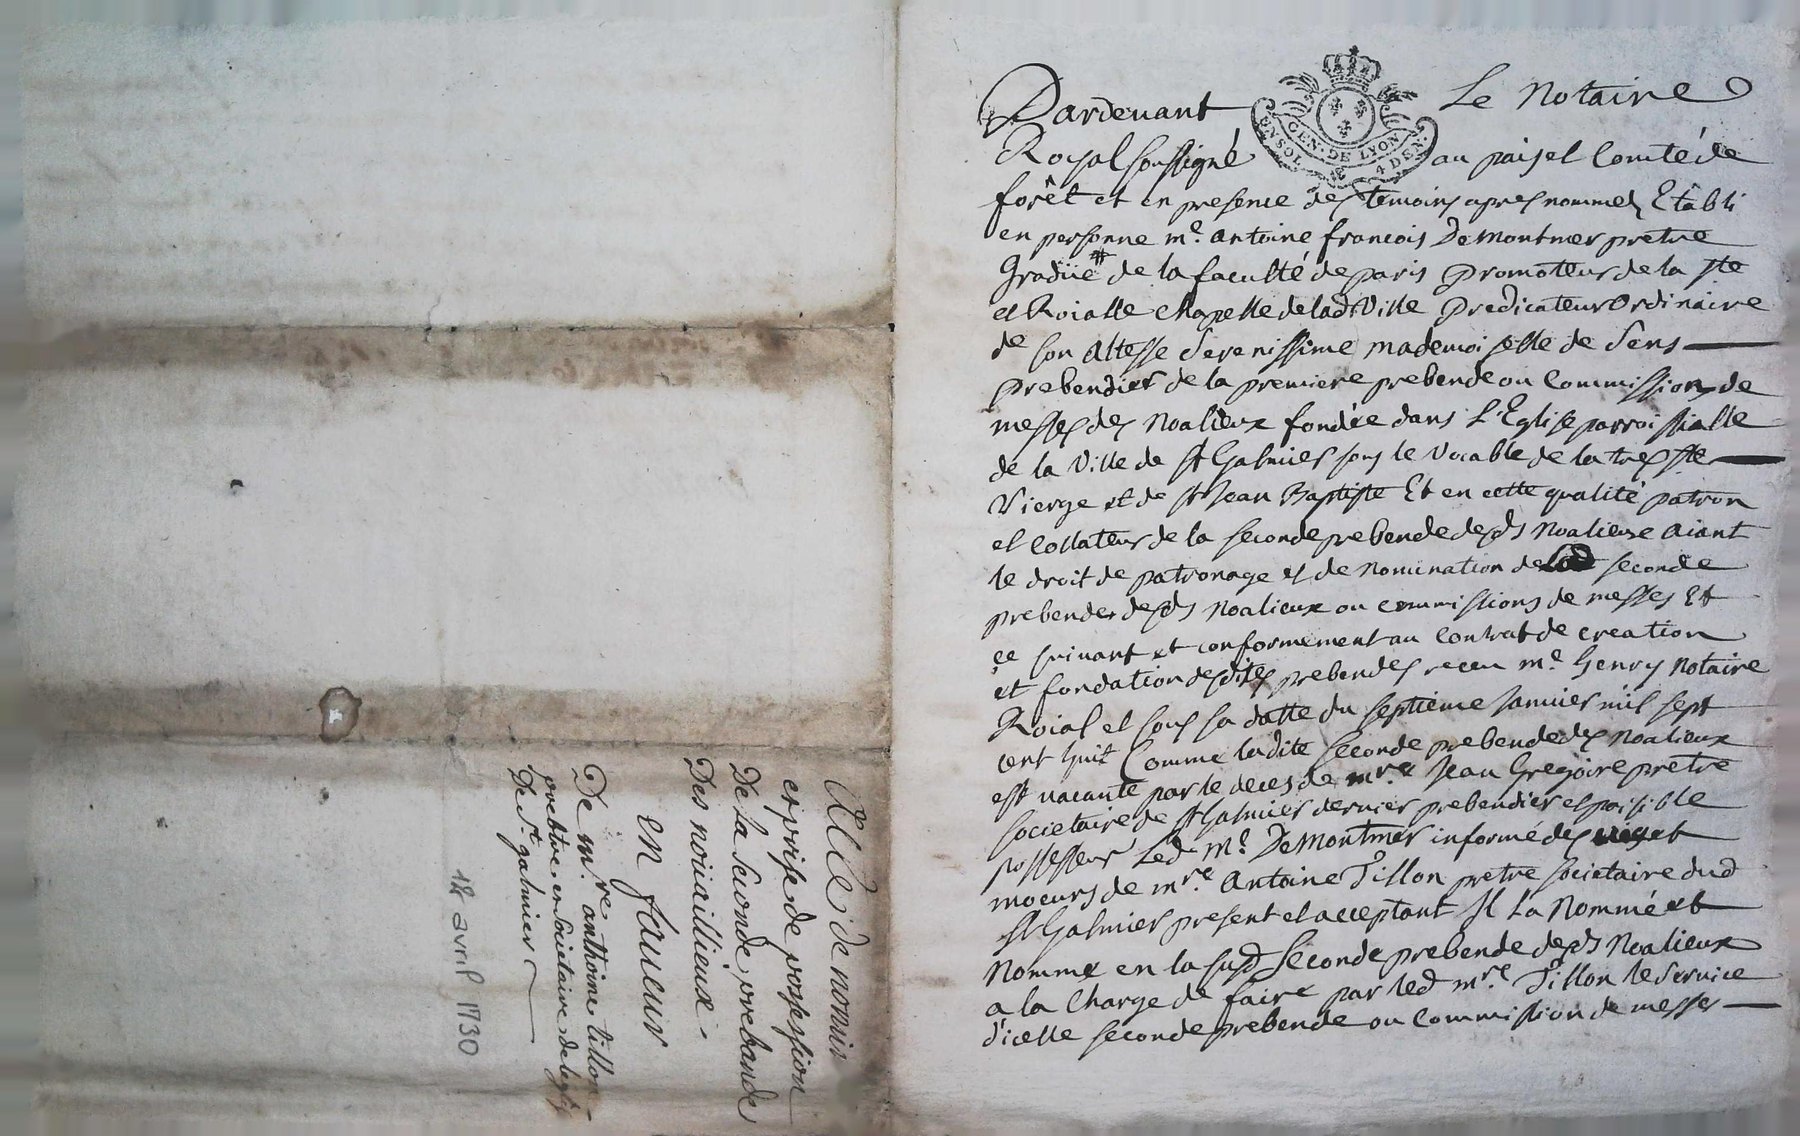 Acte de nomin
et prise de possession
De la seconde prebande
Des noiiaillieux -
en faueur
De m.re anthoine tillon -
prebtre et societaire de leglise
De St galmier
18 avril 1730
Pardeuant Le Notaire
GEN · DE LYON
EN SOL 4 DEN ·
Royal soussigné au païs et Comté de
forêt et en presence des temoins apres nommez Etàbli
en personne me. Antoine francois De Montmer pretre
Gradüé # de la faculté de paris promoteur de la ste
et Roialle chapelle de lad Ville predicateur Ordinaire
de son Altesse Serenissime mademoiselle de Sens
prebendier de la premiere prebende ou Commission de
messes des Noalieux fondée dans L'Eglise parroissialle
de la Ville de St Galmier sous le Vocable de la tres ste
Vierge et de St Jean Baptiste Et en cette qualité patron
et Collateur de la seconde prebende desds Noalieux aiant
le droit de patronage et de nomination de seconde
prebende desds Noalieux ou commissions de messes Et
ce suivant et conformement au Contrat de creation
et fondation desdites prebendes receu me. Henry Notaire
Roial et sous sa datte du septieme Januier mil sept
cent huit Comme ladite seconde prebende des Noalieux
est uacante par le deces de mre Jean Gregoire pretre
societaire de St Galmier dernier prebendier et paisible
possesseur Led. Me. De Montmer informé des uie et
moeurs de mre. Antoine Tillon pretre societaire dud
St Galmier present et acceptant Il La Nommé et
Nomme en la susd Seconde prebende desds Noalieux
a la Charge de faire par led mre. Tillon le Seruice
d'icelle seconde prebende ou Commission de messes